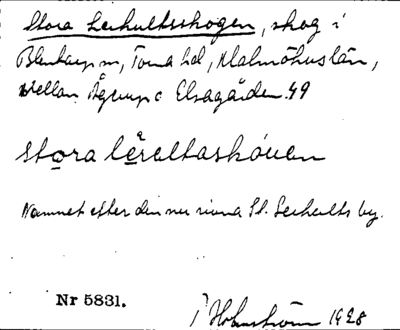 Stora Lerhultsskogen, skog i
Blentarp sn, Torna hd, Malmöhus län,
mellan Ågerup o Elsagården. 49
stora lèreltaskóuen
Namnet efter den nu rivna St. Lerhults by.
Nr 5831.
Holmström 1928